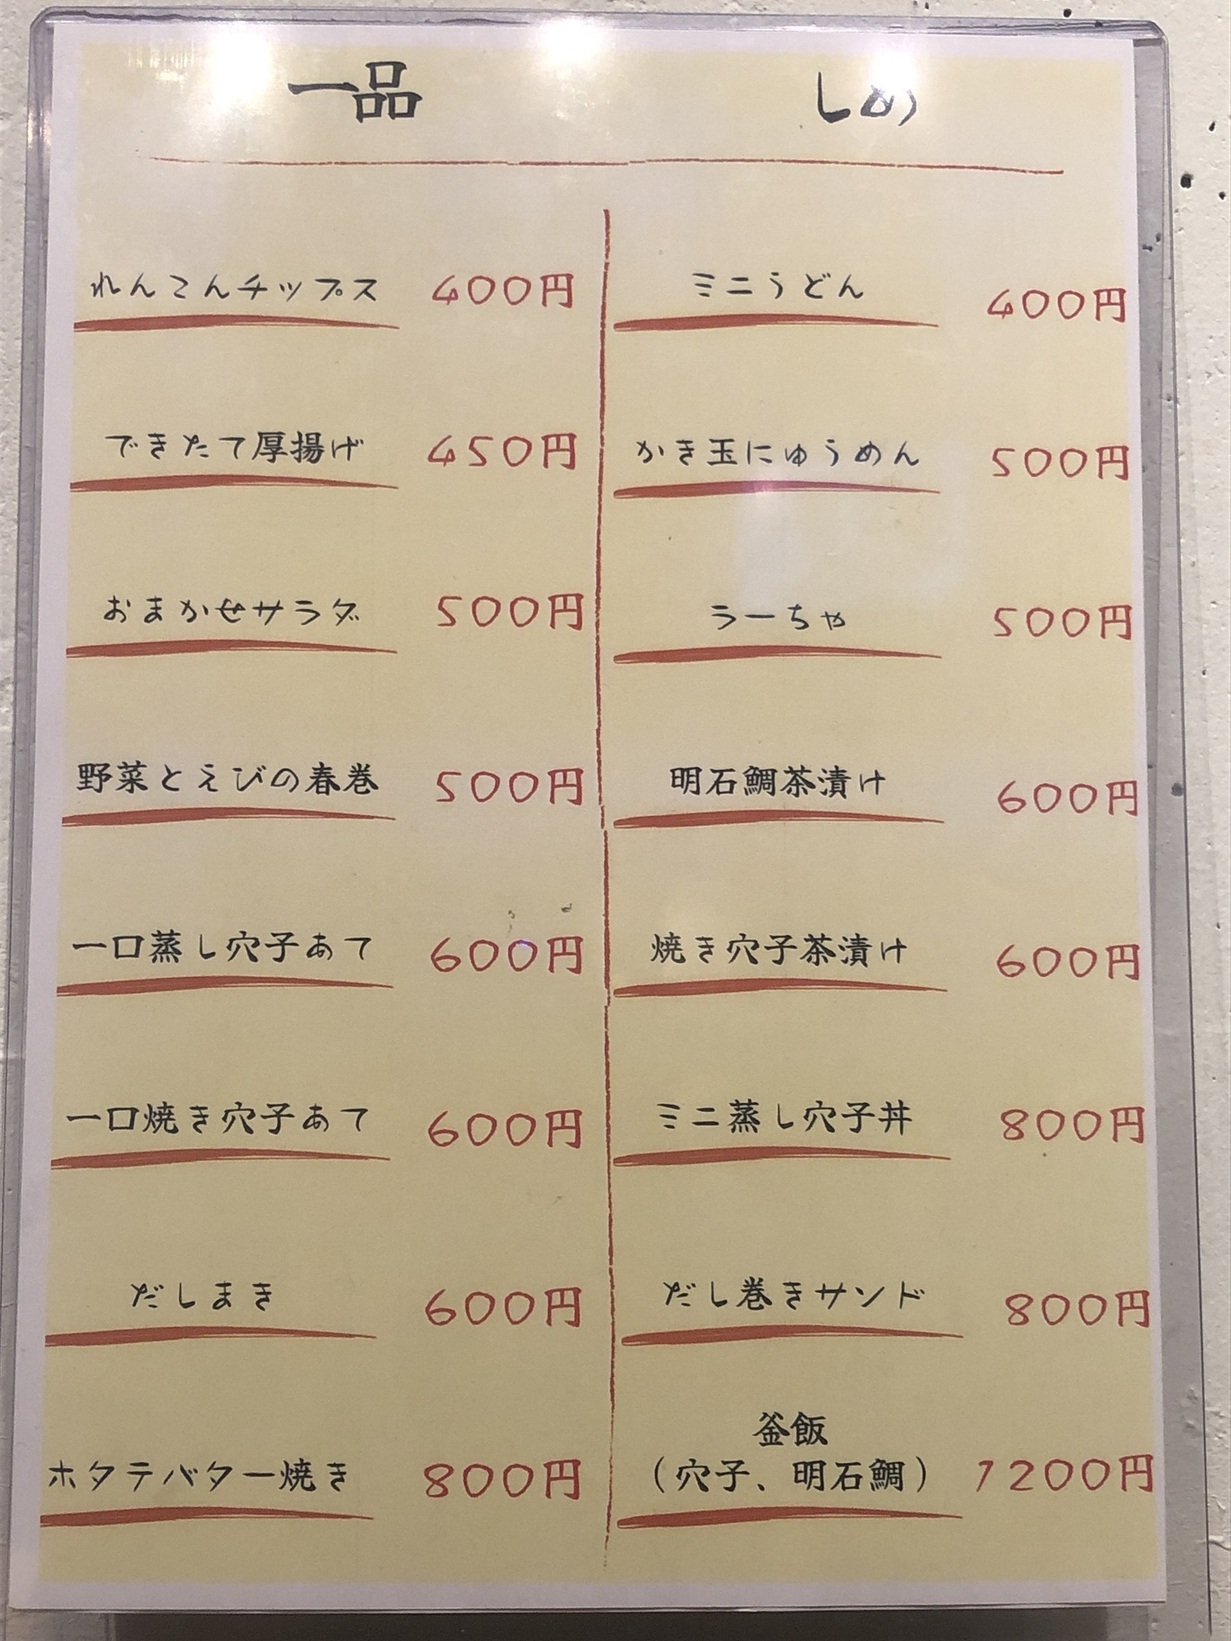 一品
れんこんチップス 400円
できたて厚揚げ 450円
おまかせサラダ 500円
野菜とえびの春巻 500円
一口蒸し穴子あて 600円
一口焼き穴子あて 600円
だしまき 600円
ホタテバター焼き 800円
しめ
ミニうどん 400円
かき玉にゅうめん 500円
らーちゃ 500円
明石鯛茶漬け 600円
焼き穴子茶漬け 600円
ミニ蒸し穴子丼 800円
だし巻きサンド 800円
釜飯
（穴子、明石鯛） 1200円